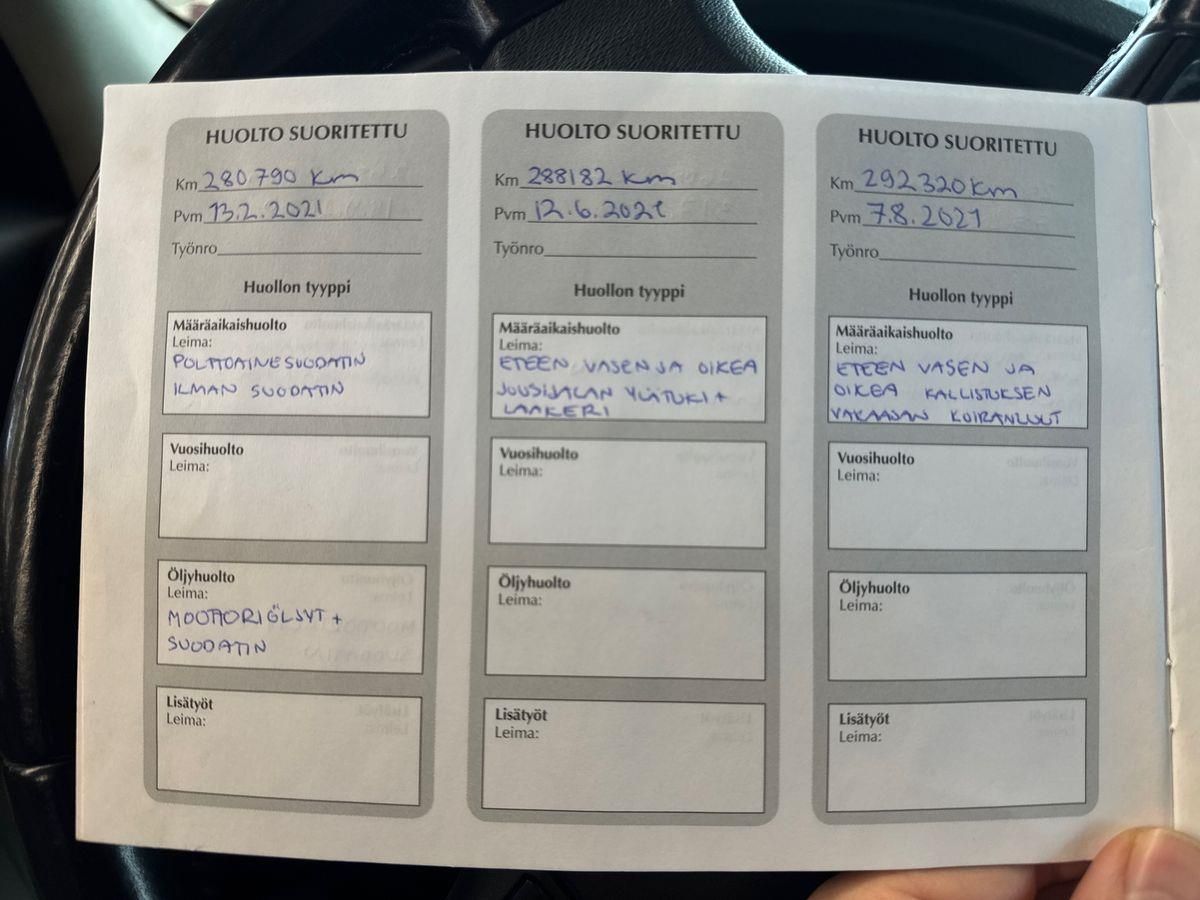 HUOLTO SUORITETTU
Km 280 790 km
Pvm 13.2.2021
Työnro
Huollon tyyppi
Määräaikaishuolto
Leima:
POLTTOAINESUODATIN
ILMAN SUODATIN
Vuosihuolto
Leima:
Öljyhuolto
Leima:
MOOTTORIÖLJYT +
SUODATIN
Lisätyöt
Leima:
HUOLTO SUORITETTU
Km 288182 km
Pvm 12.6.2021
Työnro
Huollon tyyppi
Määräaikaishuolto
Leima:
ETEEN VASEN JA OIKEA
JOUSIJALAN YLÄTUKI +
LAAKERI
Vuosihuolto
Leima:
Öljyhuolto
Leima:
Lisätyöt
Leima:
HUOLTO SUORITETTU
Km 292320 km
Pvm 7.8.2021
Työnro
Huollon tyyppi
Määräaikaishuolto
Leima:
ETEEN VASEN JA
OIKEA KALLISTUKSEN
VAKAAJAN KOIRANLUUT
Vuosihuolto
Leima:
Öljyhuolto
Leima:
Lisätyöt
Leima: